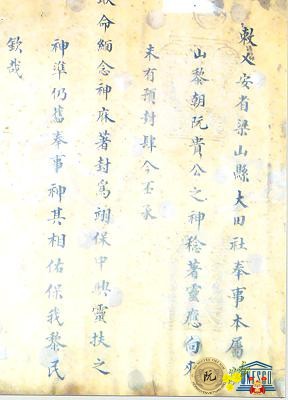 敕乂安省梁山縣大田社奉事本屬
山黎朝阮貴公之神稔著靈應向
未有預封肆今丕承
命緬念神庥著封爲翊保中興靈扶之
神準仍舊奉事神其相佑保我黎民
欽哉
阮
UNESCO